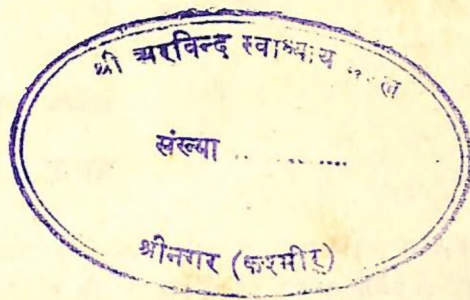 श्री अरविन्द स्वाध्याय
संख्या ..............
श्रीनगर (कश्मीर)